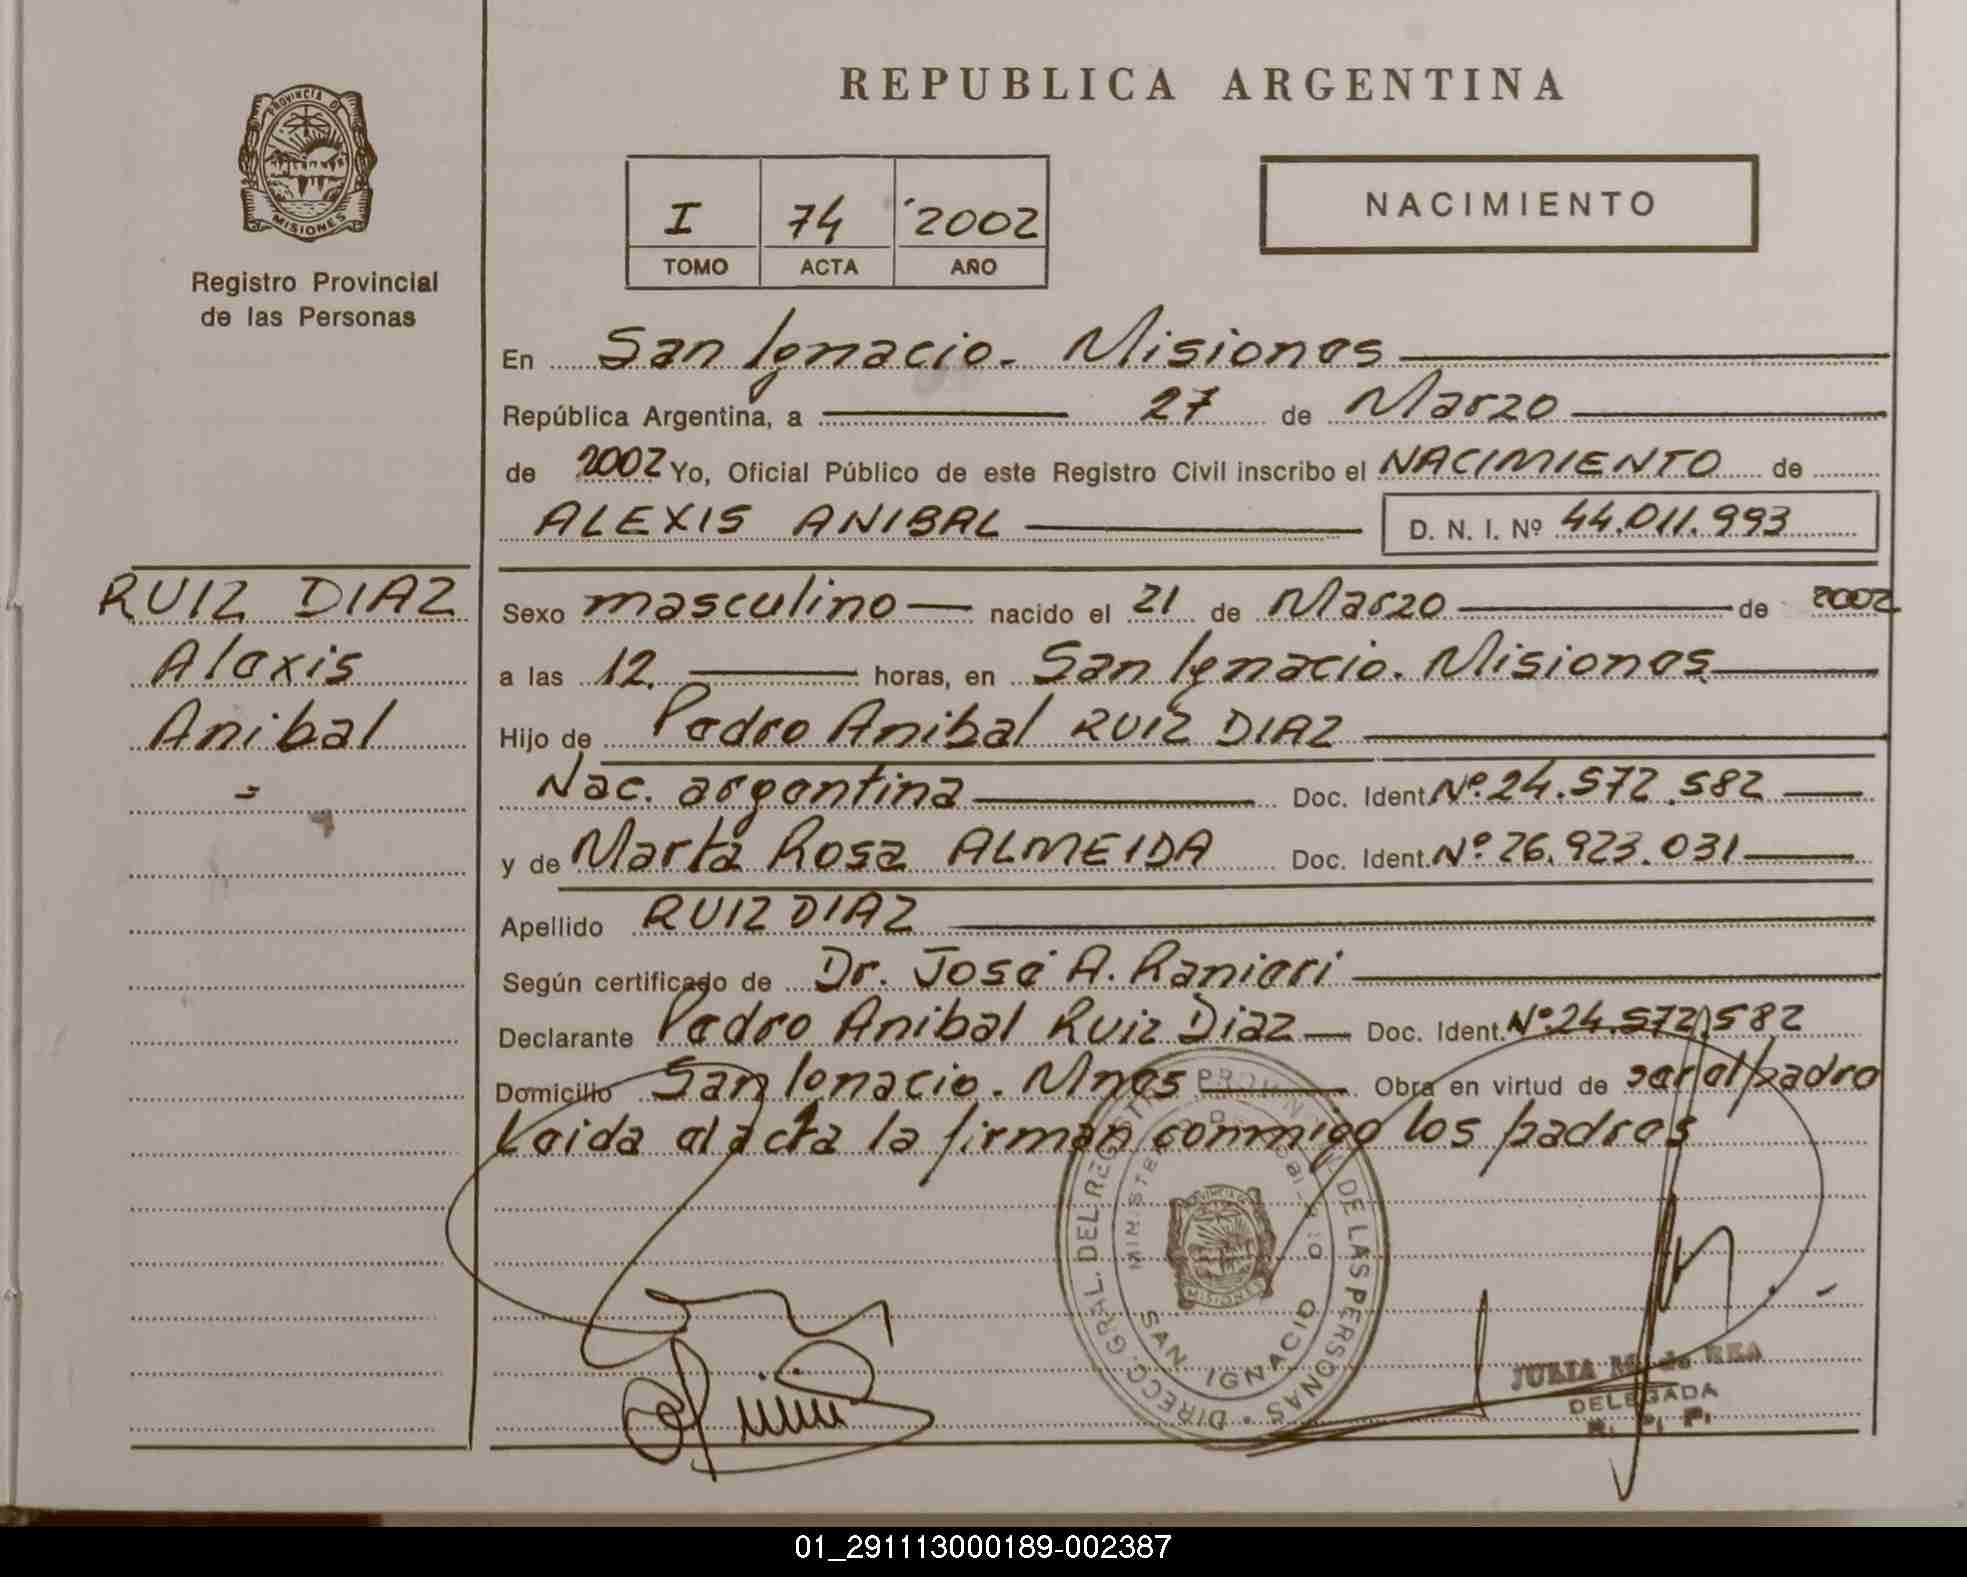 REPUBLICA ARGENTINA
PROVINCIA DE
MISIONES
Registro Provincial
de las Personas
I 74 2002
TOMO ACTA AÑO
NACIMIENTO
En San Ignacio. Misiones
República Argentina, a 27 de Marzo
de 2002 Yo, Oficial Público de este Registro Civil inscribo el NACIMIENTO de
ALEXIS ANIBAL D. N. I. Nº 44.011.993
RUIZ DIAZ
Alexis
Anibal
=
Sexo masculino nacido el 21 de Marzo de 2002
a las 12. horas, en San Ignacio. Misiones
Hijo de Pedro Anibal RUIZ DIAZ
Nac. argentina Doc. Ident. Nº. 24.572.582
y de Marta Rosa ALMEIDA Doc. Ident. Nº. 26.923.031
Apellido RUIZ DIAZ
Según certificado de Dr. José A. Ranieri
Declarante Pedro Anibal Ruiz Diaz Doc. Ident. Nº. 24.572.582
Domicilio San Ignacio. Mnes Obra en virtud de ser el padre
Leida el acta la firman conmigo los padres
DIRECC. GRAL. DEL REGISTRO PROVINCIAL DE LAS PERSONAS
SAN IGNACIO
MISIONES
JULIA M. de REA
DELEGADA
R. P. P.
01_291113000189-002387